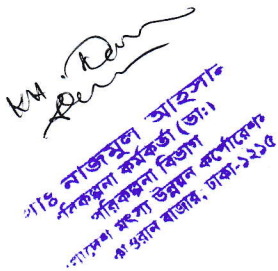 KH.
নাজমুল আহসান
পরিকল্পনা কর্মকর্তা (ভাঃ)
পরিকল্পনা বিভাগ
মৎস্য উন্নয়ন কর্পোরেশন
বাজার, ঢাকা-১২১৫